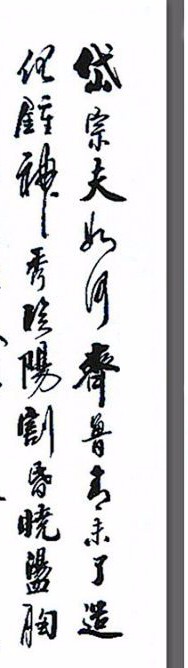 岱宗夫如何齊魯青未了造
化鍾神秀陰陽割昏曉盪胸